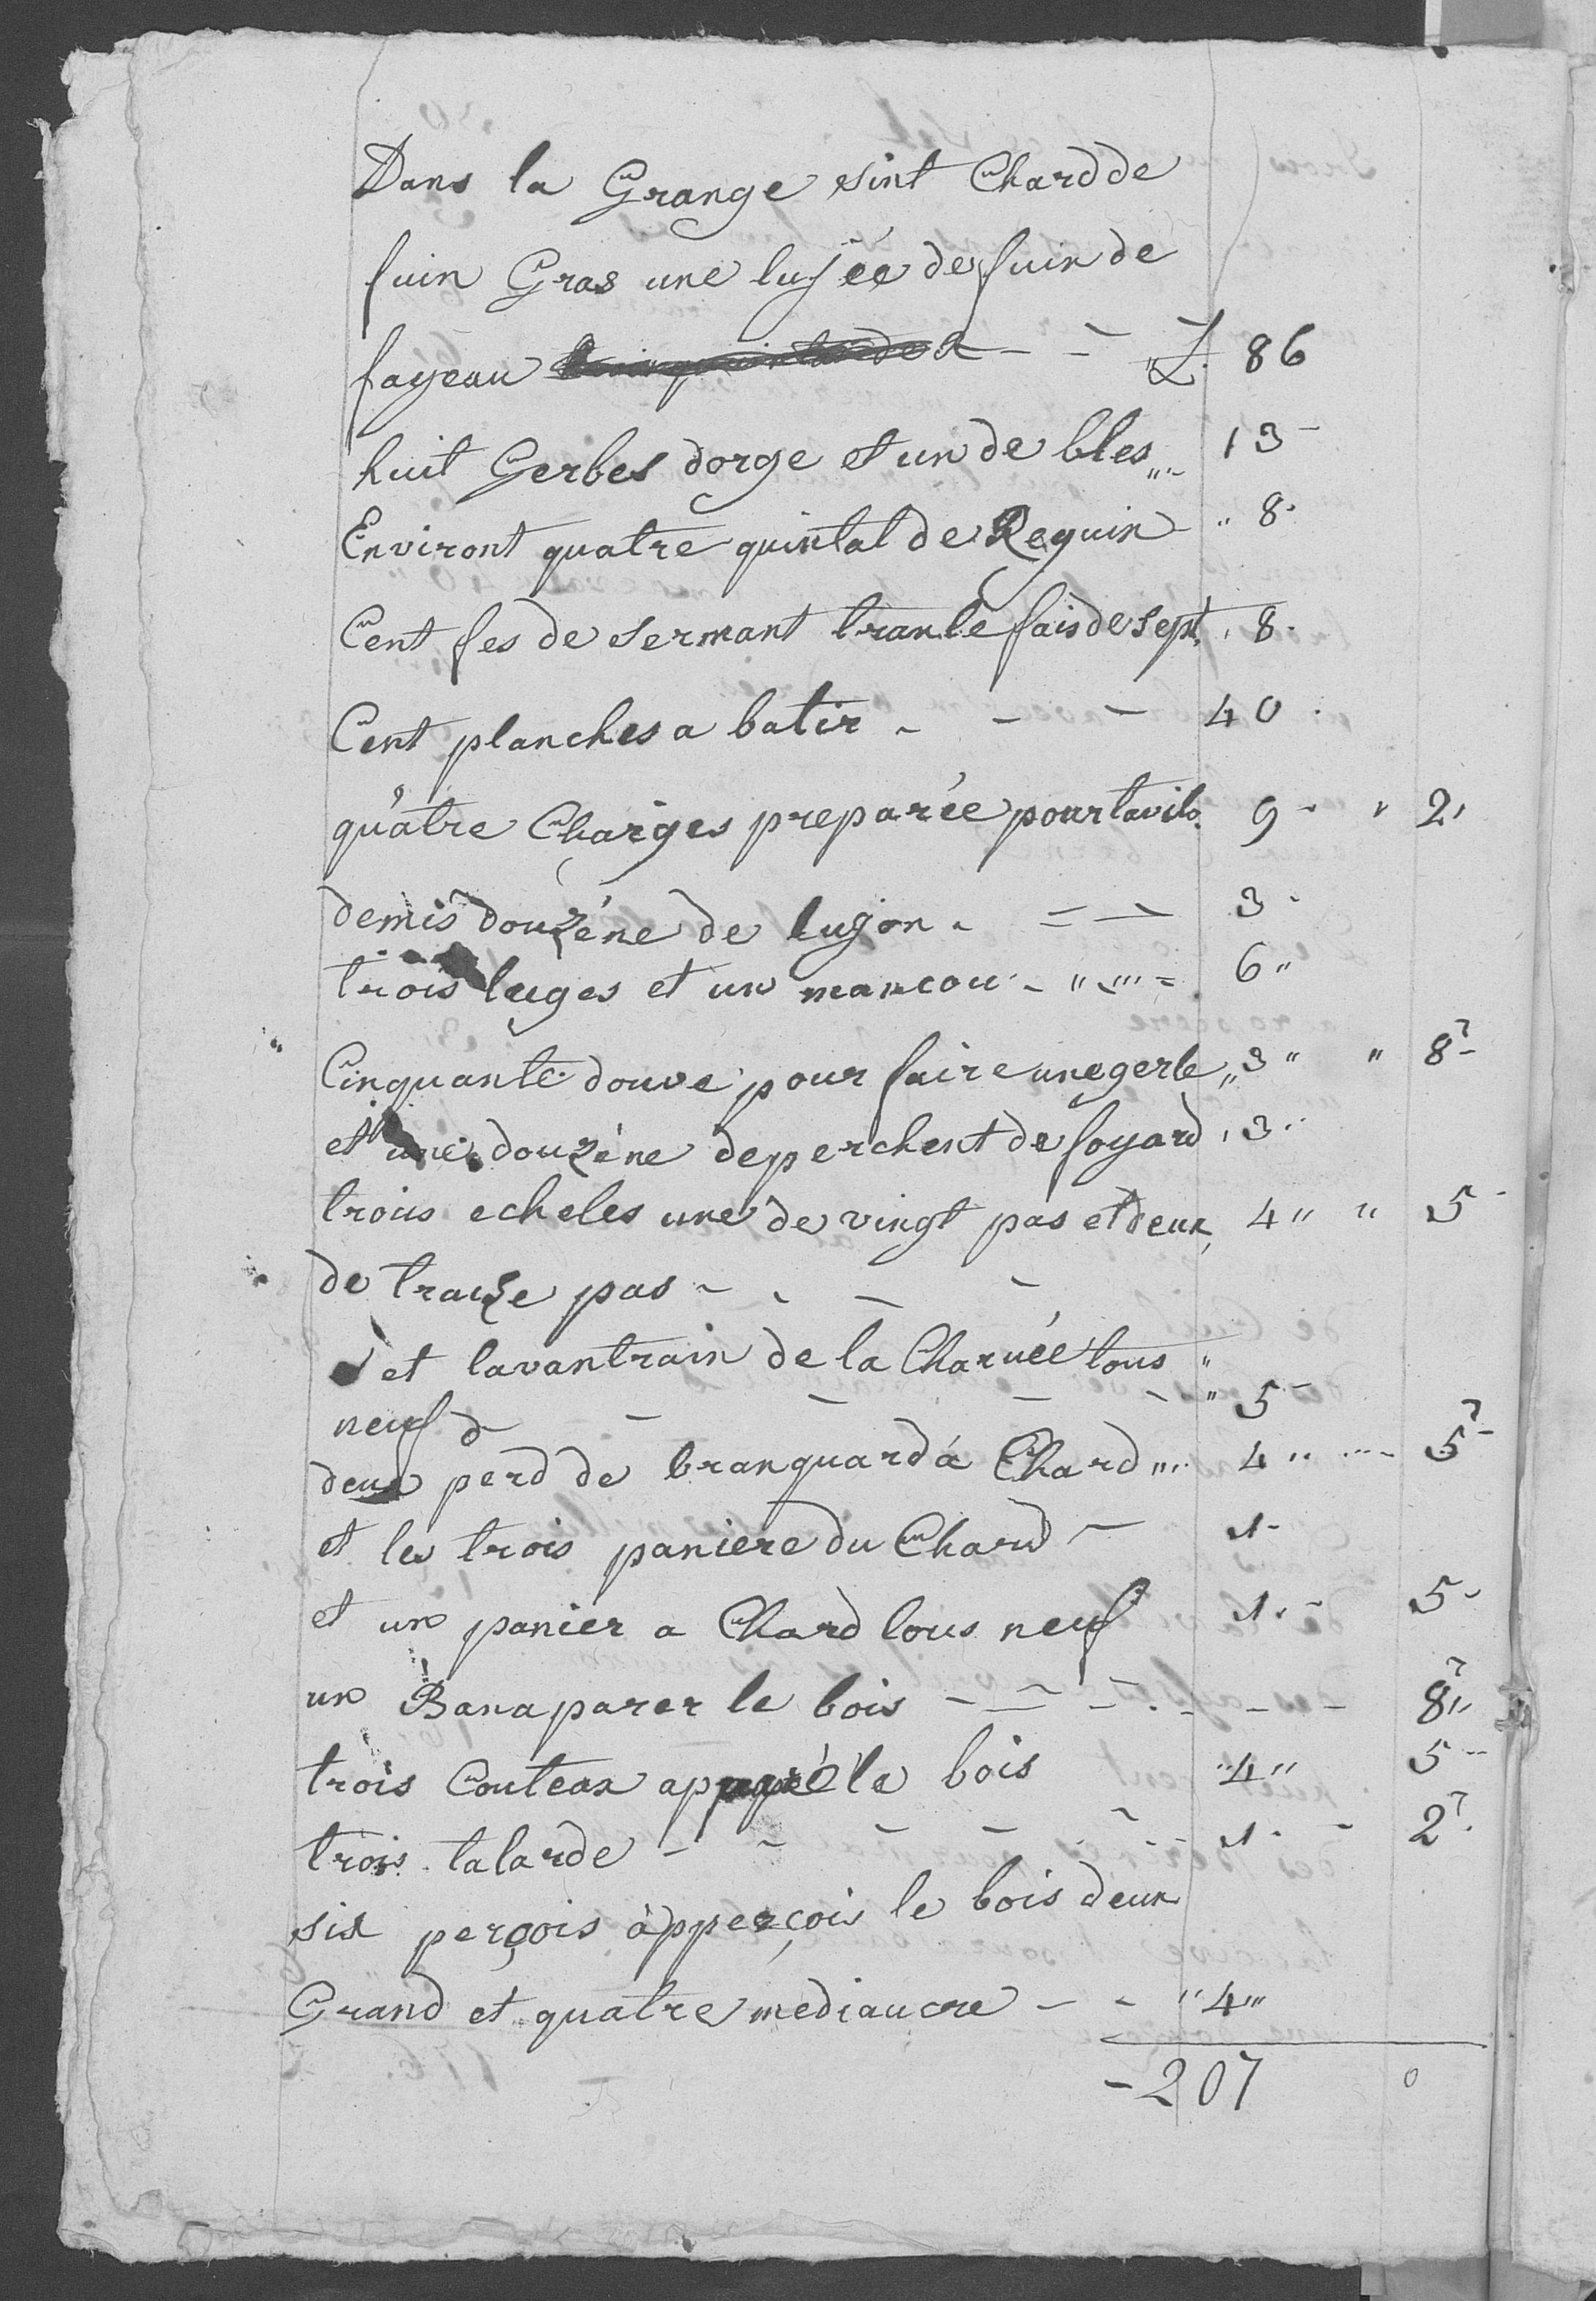 Dans la Grange sint Chard de
fuin Gras une lujée de fuin de
fayeau - - L. 86
huit Gerbes dorge et un de bles 13
Environt quatre quintal de Reguin 8
Cent fes de sermant trante fais de sept 8
Cent planches a batir - - - 40
quatre Charges preparée pour tavilo. 9 2
demis douzéne de lugon - - - 3
trois luges et un mancou - 6
Cinquante douve pour faire une gerle 3 8
et une douzéne de perchent de foyard 3
trois echeles une de vingt pas et deux 4 5
de traize pas - - - -
et lavantrain de la Charuée tous
neuf - - - - 5
deux perd de branquard á Chard 4 5
et les trois paniere du Chard - 1
et un panier a Chard tous neuf 1 5
un Banaparer le bois - - - - - - 8
trois Couteax le bois 4 5
trois talarde - - - - - 1 2
six perçois àpperçois le bois deux
Grand et quatre mediaucre - - 4
- 207 0